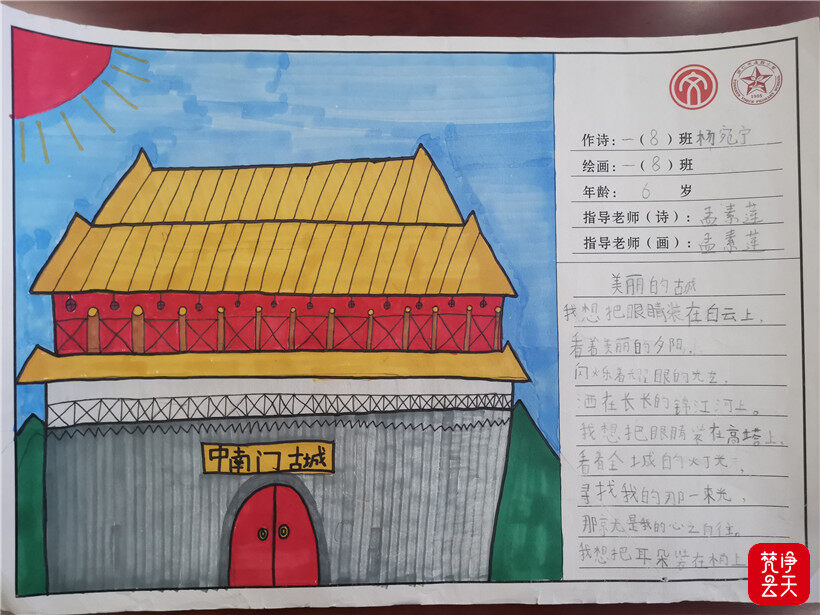 作诗：一（8）班杨宛宁
绘画：一（8）班
年龄： 6 岁
指导老师（诗）：孟素莲
指导老师（画）：孟素莲
美丽的古城
我想把眼睛装在白云上，
看着美丽的夕阳，
闪烁着耀眼的光芒，
洒在长长的錦江河上。
我想把眼睛装在高塔上，
看着全城的灯光，
寻找我的那一束光，
那束光是我的心之向往。
我想把耳朵装在梢上
中南门古城
梵净云天